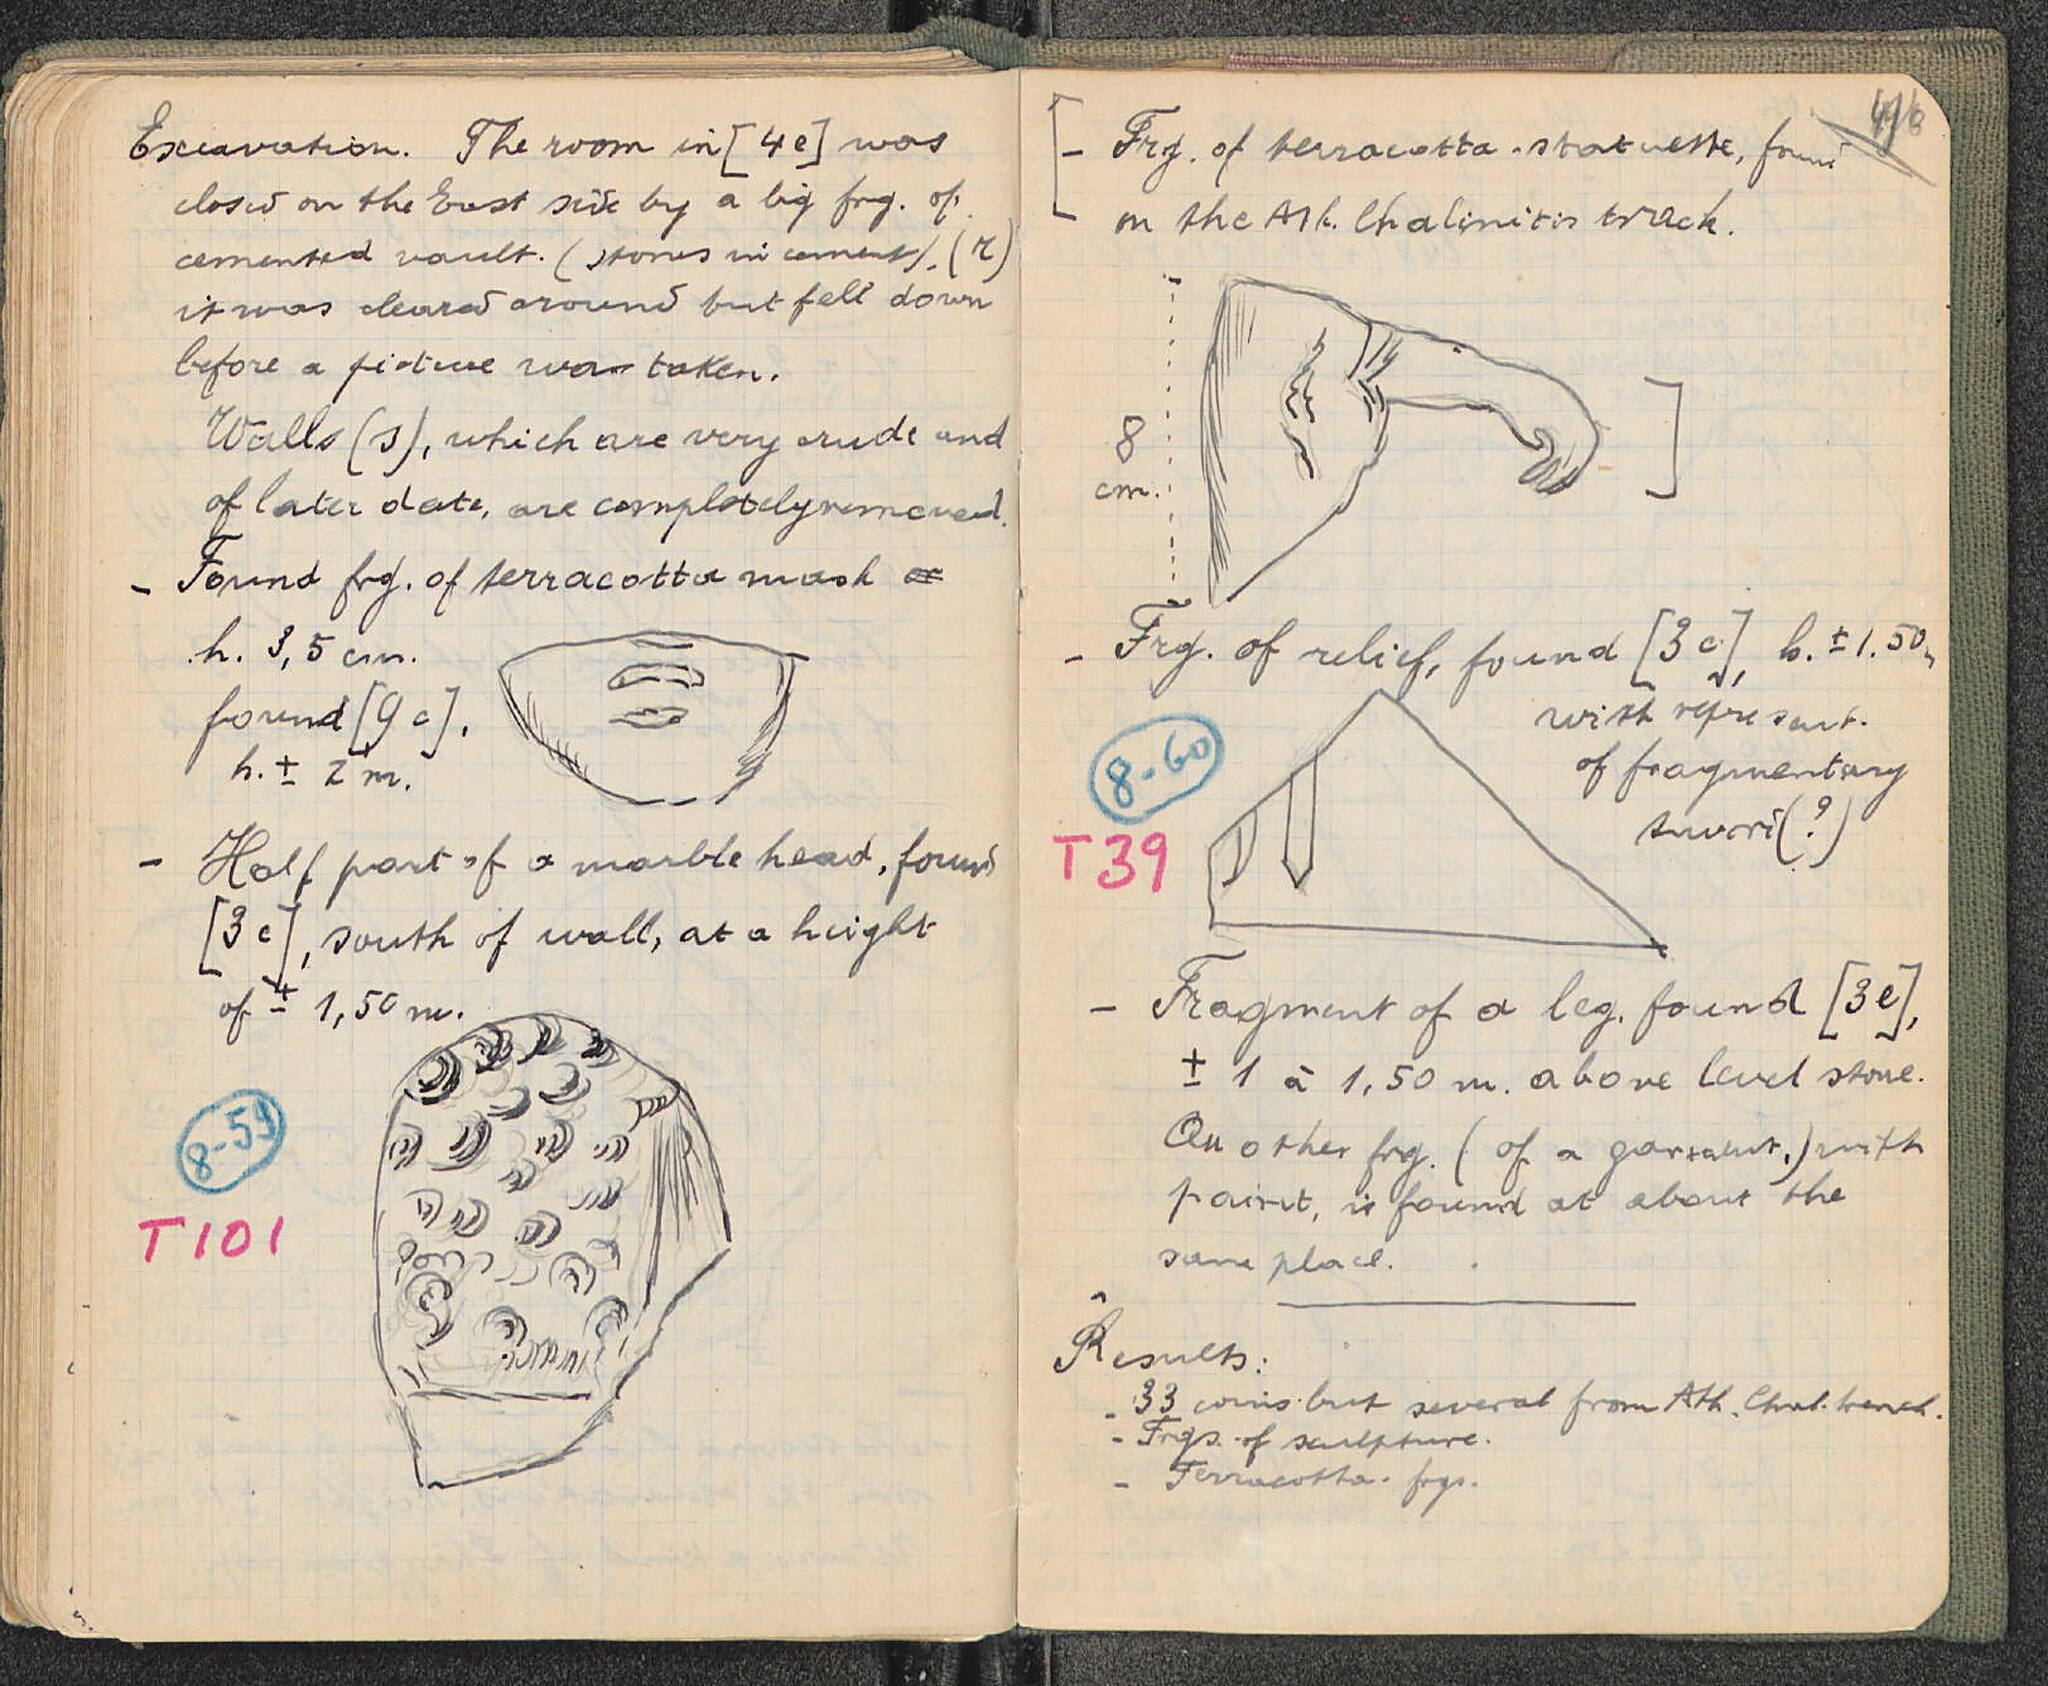 Excavation. The room in [4e] was
closed on the East side by a big frg. of
cemented vault. (stones in cement). (r)
it was cleared around but fell down
before a picture was taken.
Walls (s), which are very crude and
of later date, are completely removed.
- Found frg. of terracotta mask
h. 3,5 cm.
found [9c].
h. ± 2 m.
- Half part of a marble head, found
[3c], south of wall, at a height
of ± 1,50 m.
8-59
T101
[- Frg. of terracotta-statuette, found
on the Ath. Chalinitis track.
8
cm.
]
- Frg. of relief, found [3c], h. ± 1.50,
with represent.
of fragmentary
8-60
T39
- Fragment of a leg. found [3e],
± 1 à 1,50 m. above level stone.
An other frg. (of a garment,) with
paint, is found at about the
same place.
Results:
- 33 coins but several from Ath. Chal. trench.
- Frgs. of sculpture.
- Terracotta-frgs.